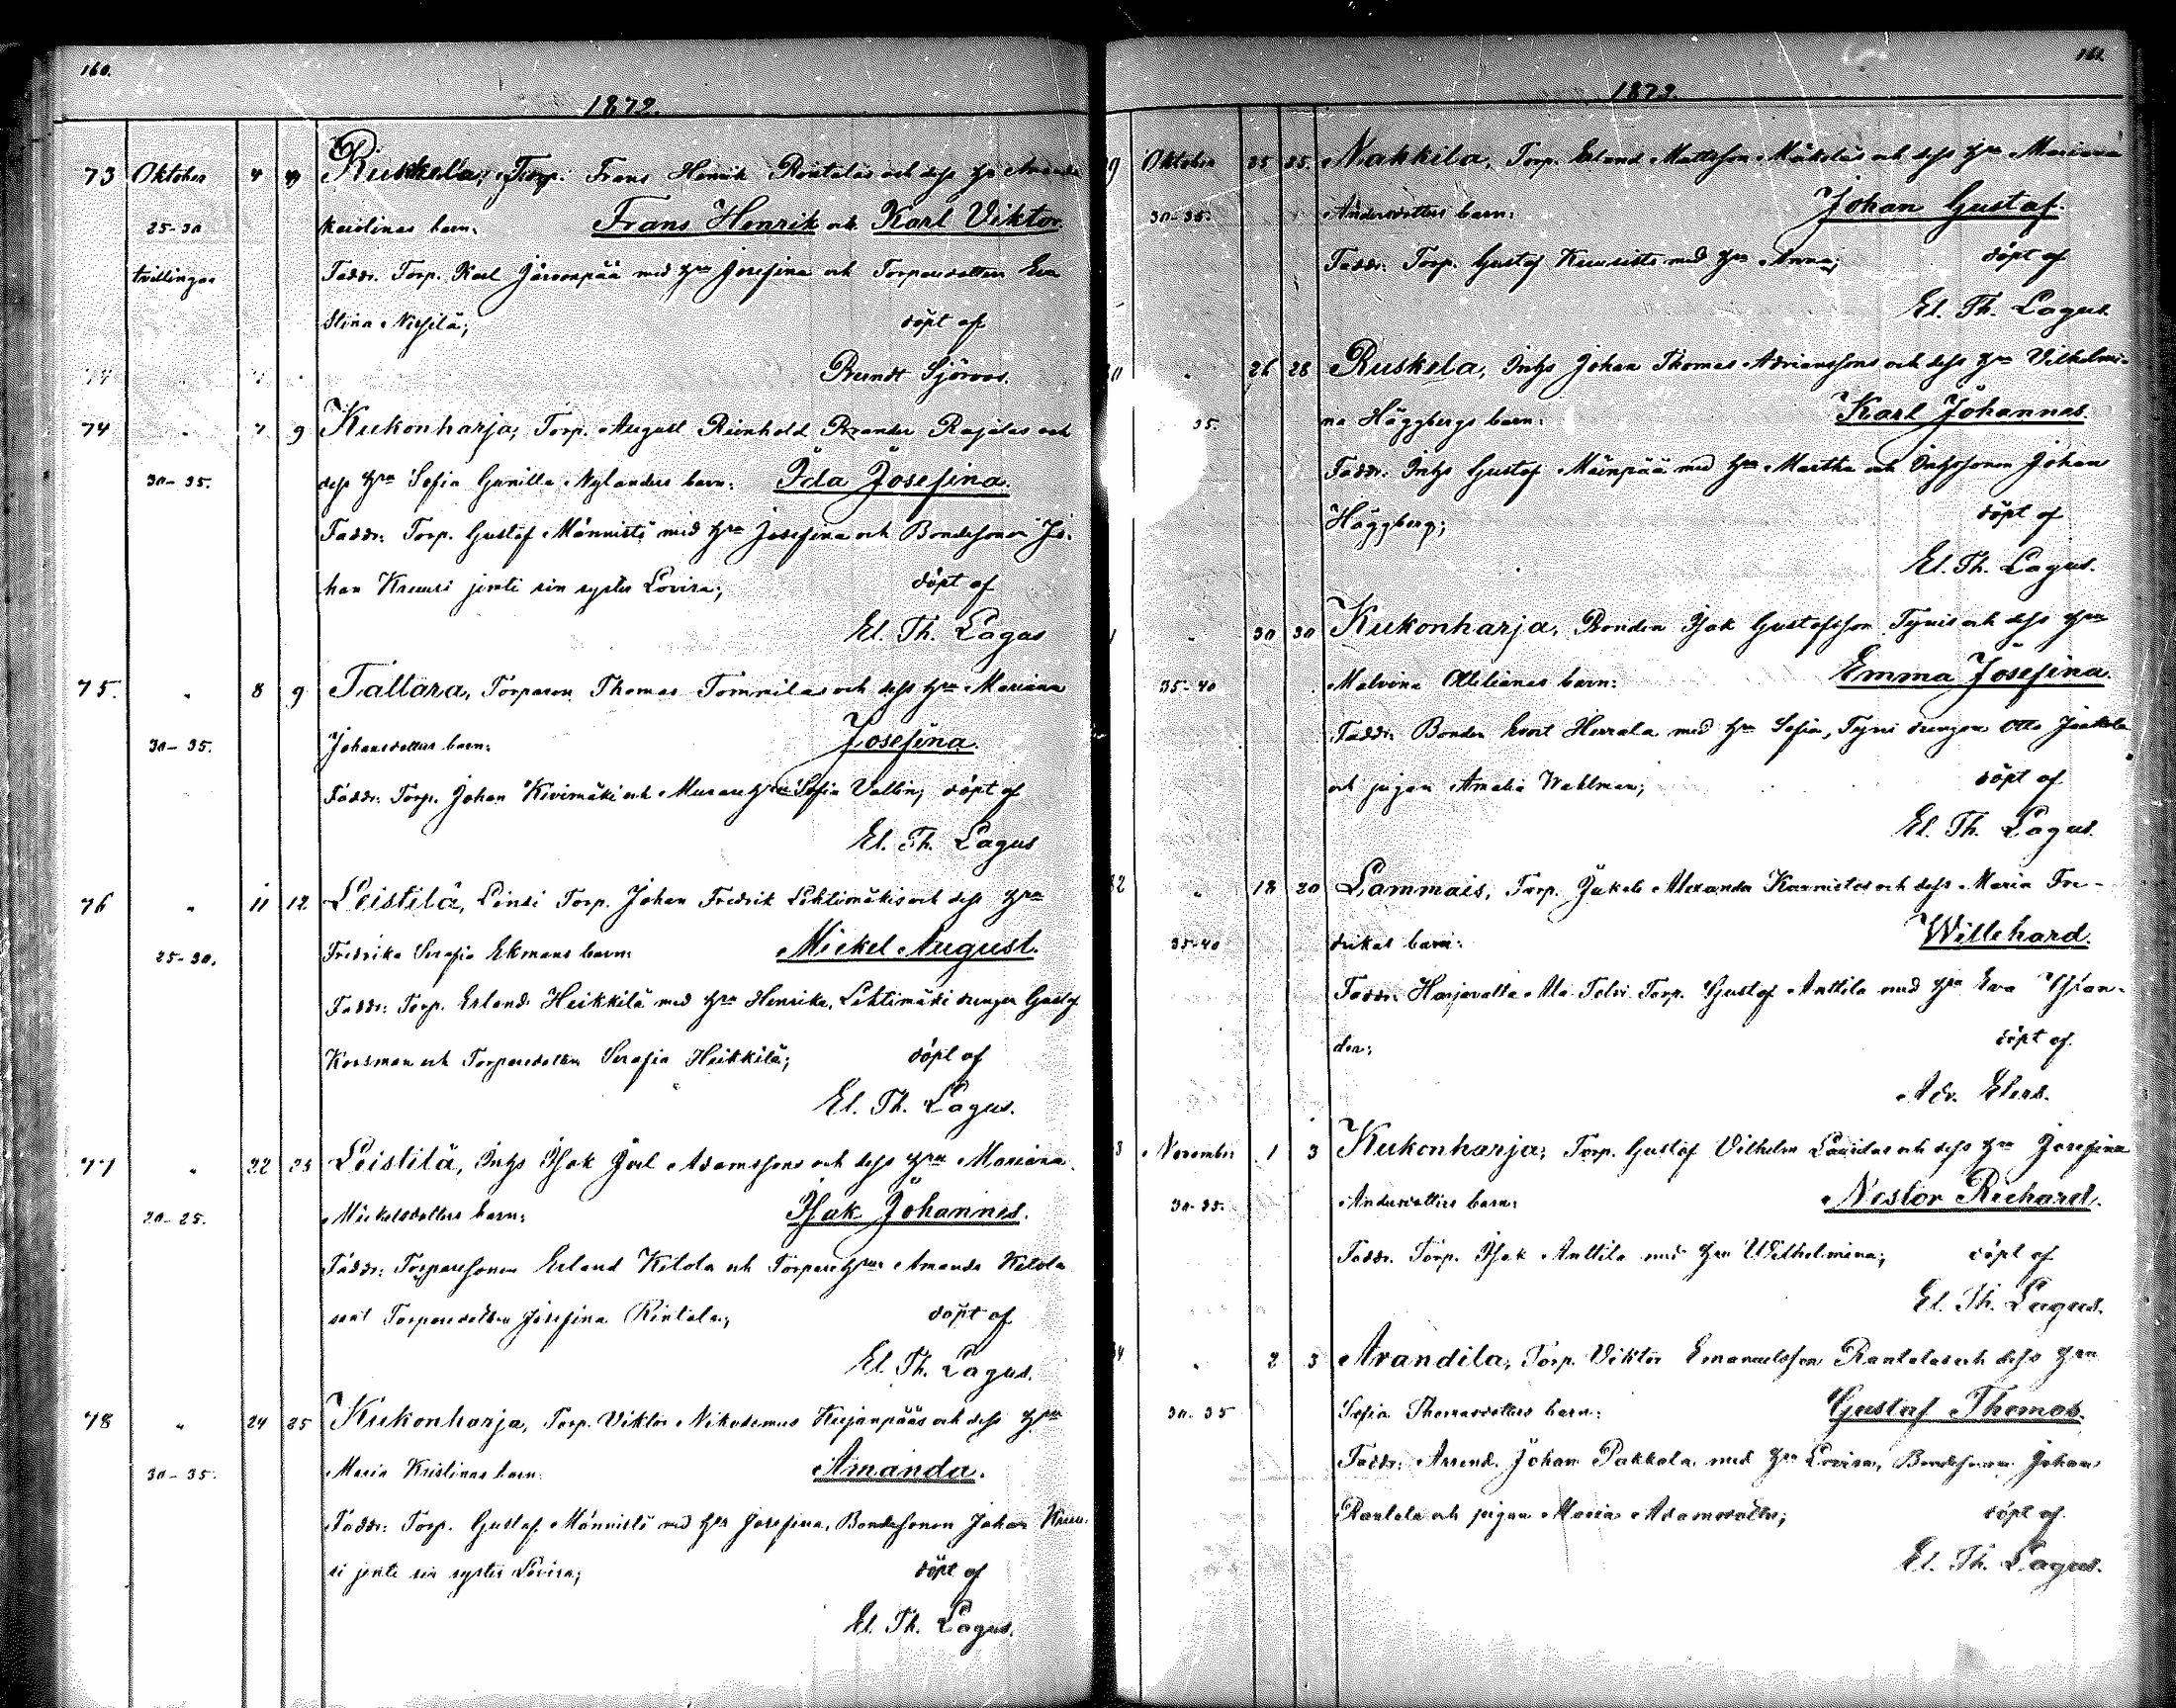 160.
1872.
73 Oktober 4 Ruskela, Torp. Frans Henrik Rintalas och dess h:u Amanda
25-30 Karolinas barn: Frans Henrik och Karl Viktor.
tvillingar Faddr. Torp. Karl Järvenpää med h:u Josefina och Torparedottern Eva
Stina Nissilä; döpt af
Berndt Sjöroos.
74 " 7 9 Kukonharja, Torp. August Reinhold Brander Rajalas och
30-35. dess h:u Sofia Gunilla Nylanders barn: Ida Josefina.
Faddr: Torp. Gustaf Männistö med h:u Josefina och Bondesonen Jo-
han Kreusi jemte sin syster Lovisa; döpt af
El. Th. Lagus
75. " 8 9 Tattara, Torparen Thomas Tommilas och dess h:u Mariana
30-35. Johansdotters barn: Josefina.
Faddr: Torp. Johan Kivimäki och Murareh:u Sofia Vallin; döpt af
El. Th. Lagus
76 " 11 12 Leistilä, Torp. Johan Fredrik Lehtimäkis och dess h:u
25-30. Fredrika Serafia Ekmans barn: Mickel August.
Faddr: Torp. Erland Heikkilä med h:u Henrika, Lehtimäki drengen Gustaf
Korsman och Torparedottern Serafia Heikkilä; döpt af
El. Th. Lagus.
77 " 22 23 Leistilä, Inhs Isak Joel Adamssons och dess h:u Mariana
20-25. Mickelsdotters barn: Isak Johannes.
Faddr: Torparesonen Erland Kitola och Torpareh:u Amanda Kitola
samt Torparedottern Josefina Rintala; döpt af
El. Th. Lagus.
78 " 24 25 Kukonharja, Torp. Viktor Nikodemus Kujanpääs och dess h:u
30-35. Maria Kristinas barn: Amanda.
Faddr: Torp. Gustaf Männistö med h:u Josefina, Bondesonen Johan Kreu-
si jemte sin syster Lovisa; döpt af
El. Th. Lagus.
161.
1872.
9 Oktober 25 25. Nakkila, Torp. Erland Mattsson Mäkeläs och dess h:u Mariana
30-35. Andersdotters barn: Johan Gustaf.
Faddr: Torp. Gustaf Kuusisto med h:u Anna; döpt af
El. Th. Lagus.
" 26 28 Ruskela, Inhs Johan Thomas Adrianssons och dess h:u Vilhelmi-
35. na Häggbergs barn: Karl Johannes.
Faddr: Inhs Gustaf Mäenpää med h:u Martha och Inhssonen Johan
Häggberg; döpt af
El. Th. Lagus.
" 30 30 Kukonharja, Bonden Isak Gustafsson Tynis och dess h:u
35-40 Malvina Ottilianas barn: Emma Josefina.
Faddr: Bonden Evert Herrala med h:u Sofia, Tyni drengen Otto Jaakola
och pigan Amalia Wahlman; döpt af
El. Th. Lagus.
82 " 18 20 Lammais, Torp. Jakob Alexander Kaunistos och dess Maria Fre-
35-40 drikas barn: Willehard.
Faddr: Harjavalta Ala-Talvi Torp. Gustaf Anttila med h:u Eva
der; döpt af
3 November 1 3 Kukonharja, Torp. Gustaf Vilhelm Laurilas och dess h:u Josefina
30-35. Andersdotters barn: Nestor Richard.
Faddr. Torp. Isak Anttila med h:u Wilhelmina; döpt af
El. Th. Lagus.
84 " 2 3 Arandila, Torp. Viktor Emanuelsson Rantalas och dess h:u
30-35 Sofia Thomasdotters barn: Gustaf Thomas.
Faddr: Arrend. Johan Pakkala med h:u Lovisa, Bondesonen Johan
Rantala och pigan Maria Adamsdotter; döpt af
El. Th. Lagus.